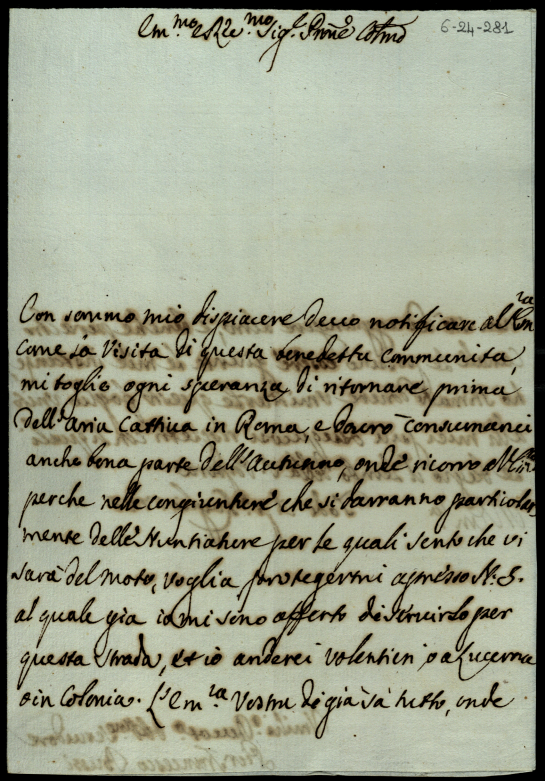 Em.mo e Rev.mo Sig.r Prñe Col.mo
6-24-281
Con sommo mio dispiacere devo notificare al Em.za
come la Visita di questa benedetta communità,
mi toglie ogni speranza di ritornare prima
dell'aria Cattiva in Roma, e dovrò consumarci
anche bona parte dell'Autunno, onde ricorro all'
perche nelle congiunture che si daranno particolar
mente delle Nuntiature per le quali sento che vi
sarà del moto, voglia protegermi apresso N. S.
al quale già io mi sono offerto di servirlo per
questa strada, et io anderei volentieri o a Lucerna
o in Colonia. L' Em.za Vostra di già sà tutto, onde